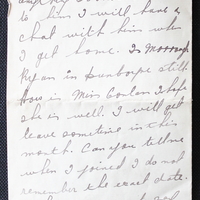 to him I will have a
chat with him when
I get home. Is
Ryan in Dunboyne still
How is Miss Conlon I hope
she is well. I will get
leave sometime in this
month. Can you tell me
when I joined I do not
remember the exact date.